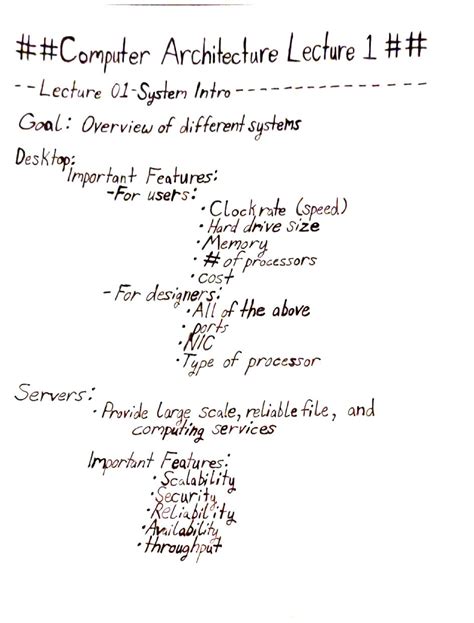 ##Computer Architecture Lecture 1##
--Lecture 01-System Intro--------------
Goal: Overview of different systems
Desktop:
Important Features:
-For users:
•Clock rate (speed)
•Hard drive size
•Memory
•# of processors
•cost
-For designers:
•All of the above
•ports
•NIC
•Type of processor
Servers:
•Provide large scale, reliable file, and
computing services
Important Features:
•Scalability
•Security
•Reliability
•Availability
•throughput